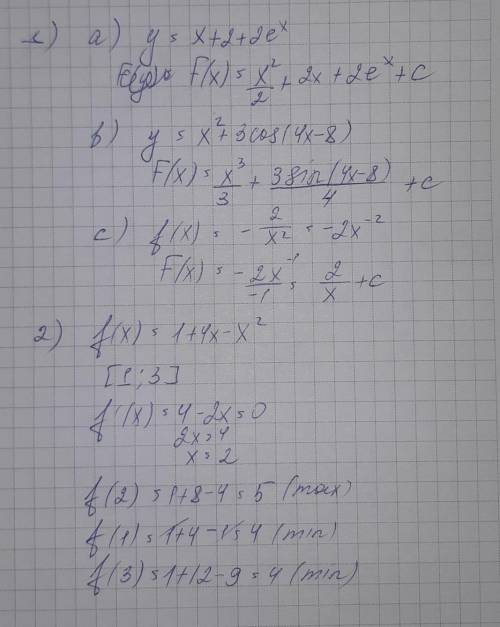 1) a) y = x+2+2e^x
F(x) = x²/2 + 2x + 2e^x + c
b) y = x² + 3cos(4x-8)
F(x) = x³/3 + 3sin(4x-8)/4 + c
c) f(x) = - 2/x² = -2x^-2
F(x) = - 2x^-1/-1 = 2/x + c
2) f(x) = 1+4x-x²
[1;3]
f'(x) = 4-2x=0
2x=4
x=2
f(2) = 1+8-4=5 (max)
f(1) = 1+4-1=4 (min)
f(3) = 1+12-9=4 (min)